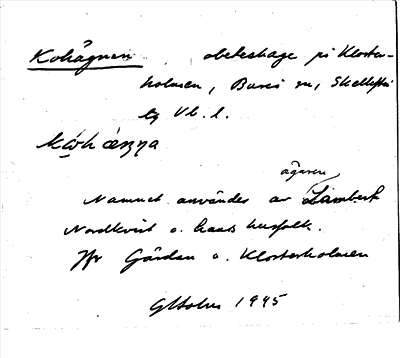 Kohägnen beteshage på Kloster-
holmen, Bureå sn, Skellefteå
lg Vb. l.
ägaren
Namnet användes av Lambert
Nordkvist o. hans husfolk.
Jfr Gärdan o. Klosterholmen
GHolm 1945